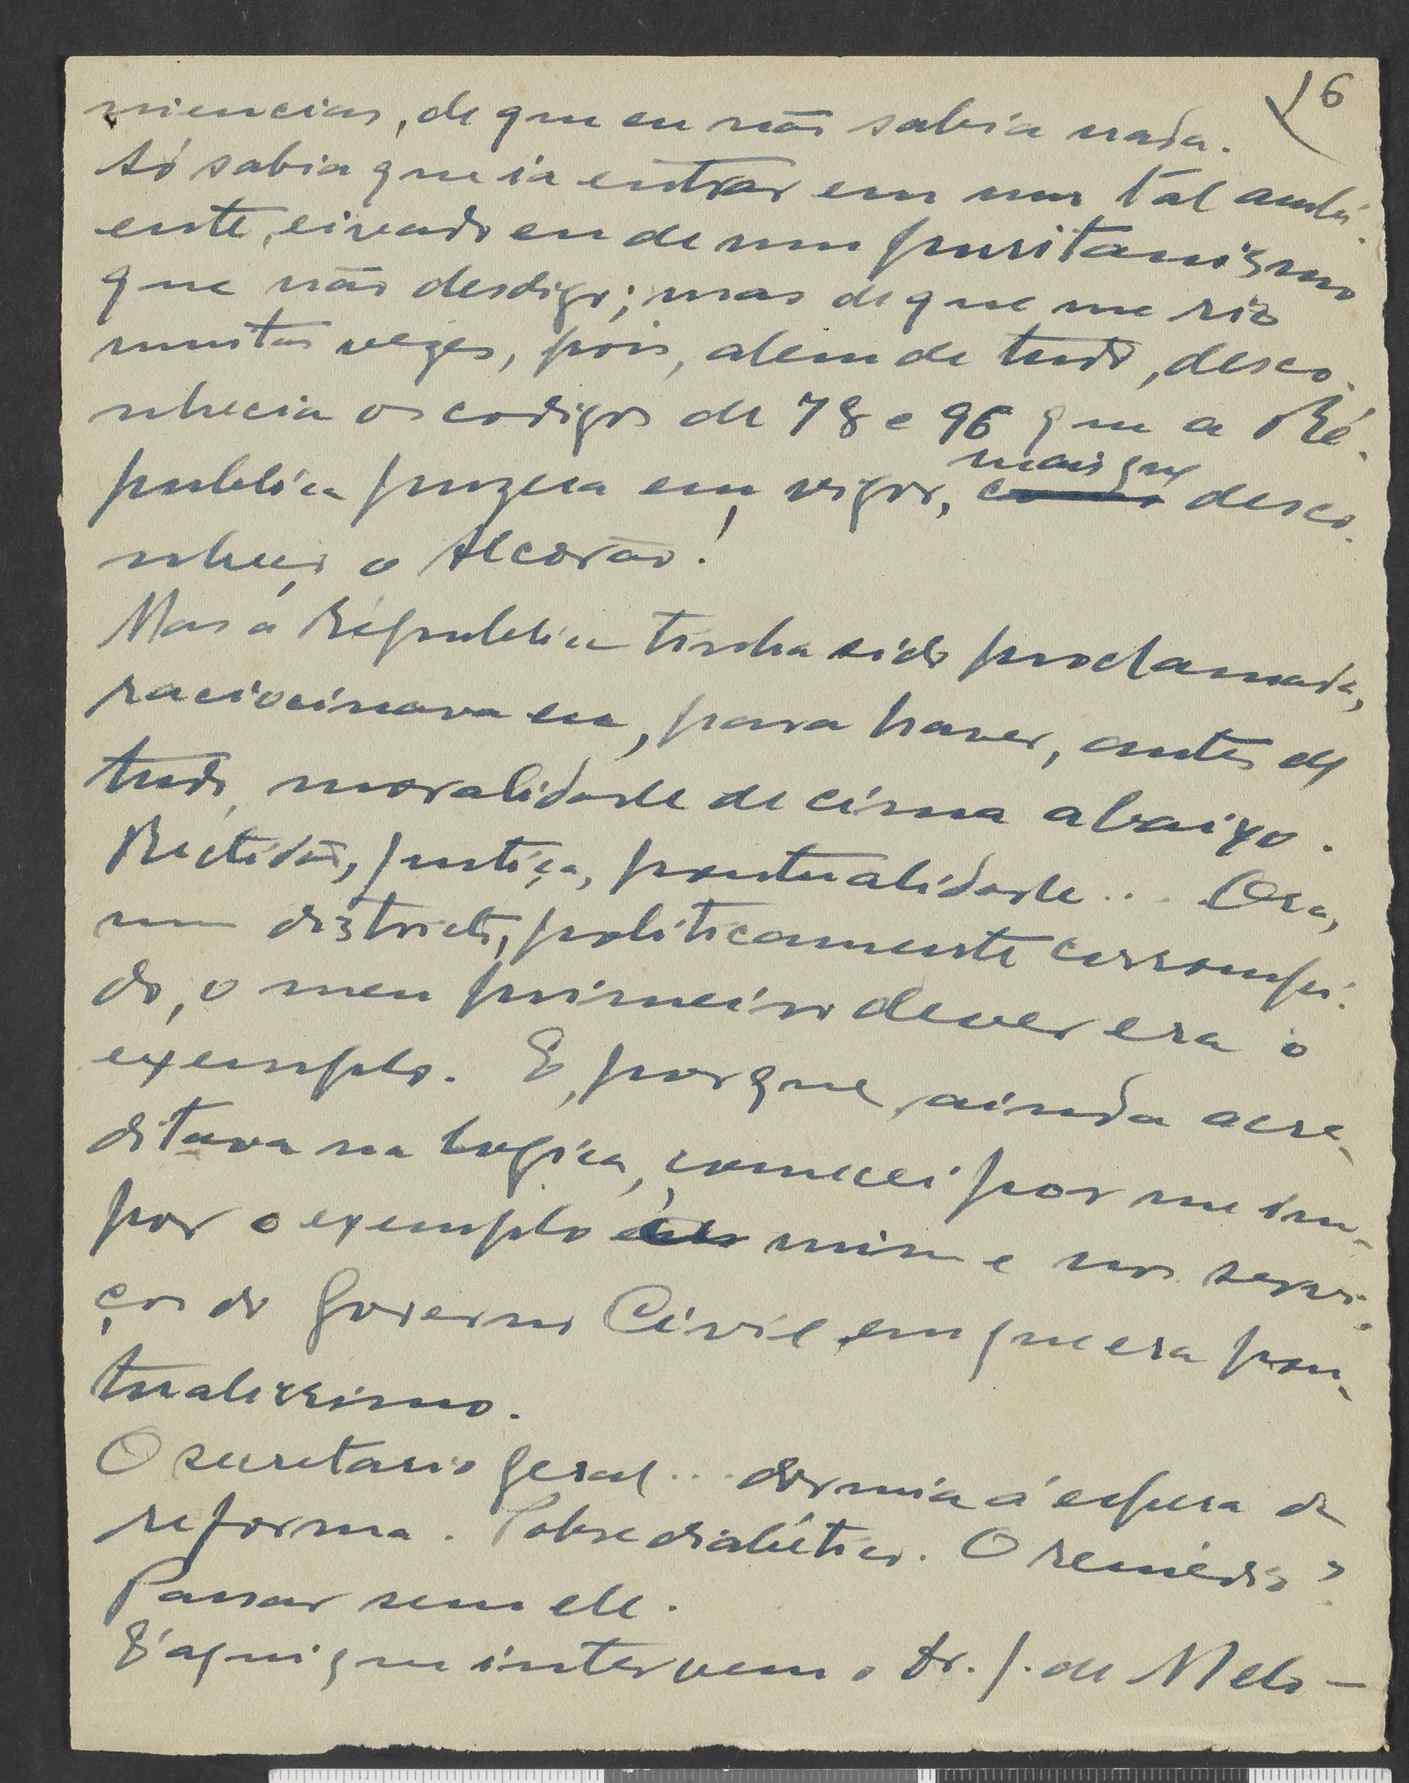 6
niencias, de que eu não sabia nada.
Só sabia que ia entrar em um tal ambi-
ente, eivado eu de um puritanismo
que não desdigo; mas de que me rio
muitas vezes, pois, alem de tudo, desco-
nhecia os codigos de 78 e 96 que a Ré-
publica puzera em vigor, mais que desco-
nheço o Alcorão!
Mas a Républica tinha sido proclamada,
raciocinava eu, para haver, antes de
tudo, moralidade de cima abaixo.
Rectidão, justiça, pontualidade... Ora,
num districto, politicamente corrompi-
do, o meu primeiro dever era o
exemplo. E, porque ainda acre-
ditava na logica, comecei por me im-
por o exemplo a mim e nos servi-
ços do Governo Civil em que era pon-
tualissimo.
O secretario geral... dormia á espera da
reforma. Pobre diabético. O remédio?
Passar sem ele.
É aqui que intervem o dr. J. de Melo -